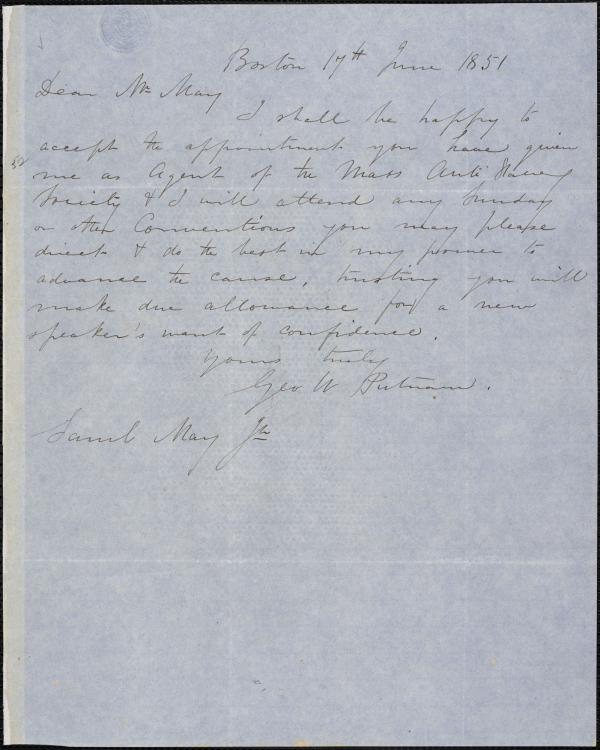 Boston 17th June 1851
Dear Mr May
I shall be happy to
accept the appointment you have given
me as Agent of the Mass Anti Slavery
Society & I will attend any Sunday
or other Conventions you may please
direct & do the best in my power to
advance the cause, trusting you will
make due allowance for a new
speaker's want of confidence.
Yours truly
Geo W Putnam.
Saml May Jr